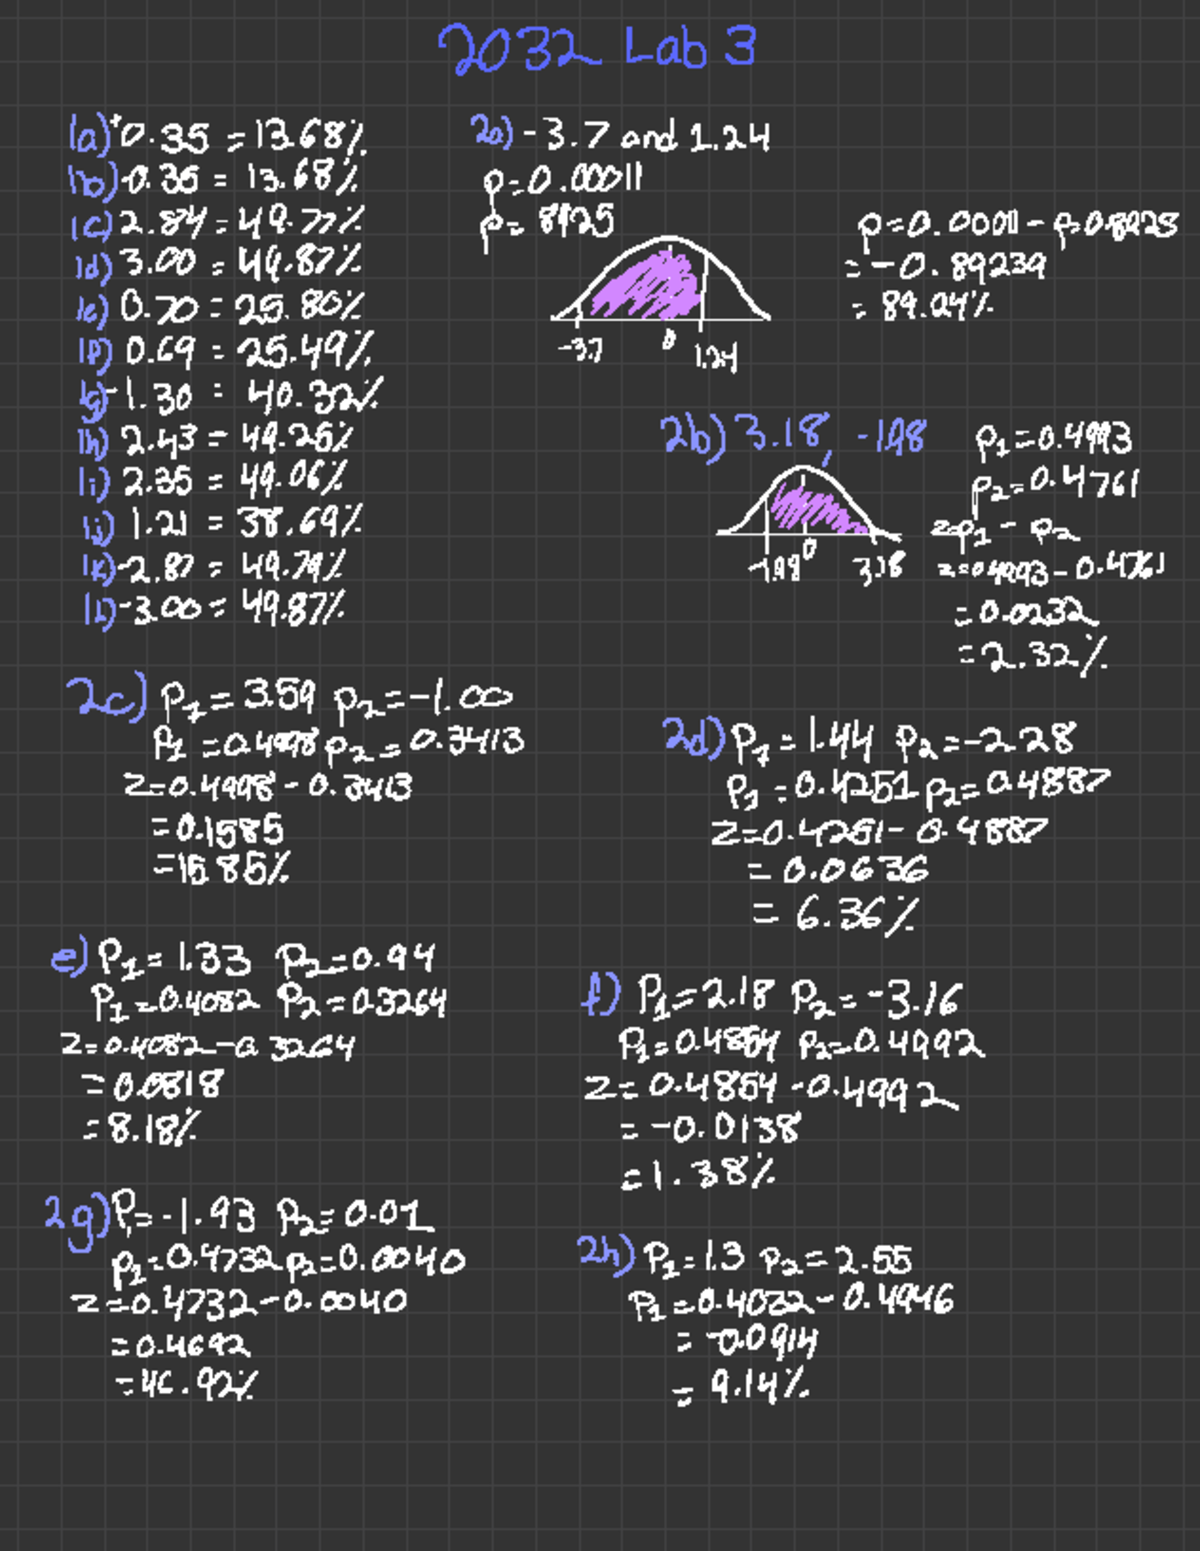 2032 Lab 3
1a) +0.35 = 13.68%
1b) -0.35 = 13.68%
1c) 2.84 = 49.77%
1d) 3.00 = 49.87%
1e) 0.70 = 25.80%
1f) 0.69 = 25.49%
1g) -1.30 = 40.32%
1h) 2.43 = 49.25%
1i) 2.35 = 49.06%
1j) 1.21 = 38.69%
1k) -2.87 = 49.79%
1L) -3.00 = 49.87%
2a) -3.7 and 1.24
p=0.00011
p= 8925
-3.7 0 1.24
p=0.00011 - p=0.8925
= -0.89239
= 89.24%
2b) 3.18, -1.98
-1.98 0 3.18
P1=0.4993
P2=0.4761
z=p1 - p2
z=0.4993-0.4761
=0.0232
=2.32%
2c) P1=3.59 P2=-1.00
P1=0.4998 P2=0.3413
Z=0.4998-0.3413
=0.1585
=15.85%
2d) P1=1.44 P2=-2.28
P1=0.4251 P2=0.4887
Z=0.4251-0.4887
= 0.0636
= 6.36%
e) P1=1.33 P2=0.94
P1=0.4082 P2=0.3264
Z=0.4082-0.3264
=0.0818
=8.18%
f) P1=2.18 P2=-3.16
P1=0.4854 P2=0.4992
Z=0.4854-0.4992
=-0.0138
=1.38%
2g) P1=-1.93 P2=0.01
P1=0.4732 P2=0.0040
Z=0.4732-0.0040
=0.4692
=46.92%
2h) P1=1.3 P2=2.55
P1=0.4032-0.4946
= -0.0914
= 9.14%